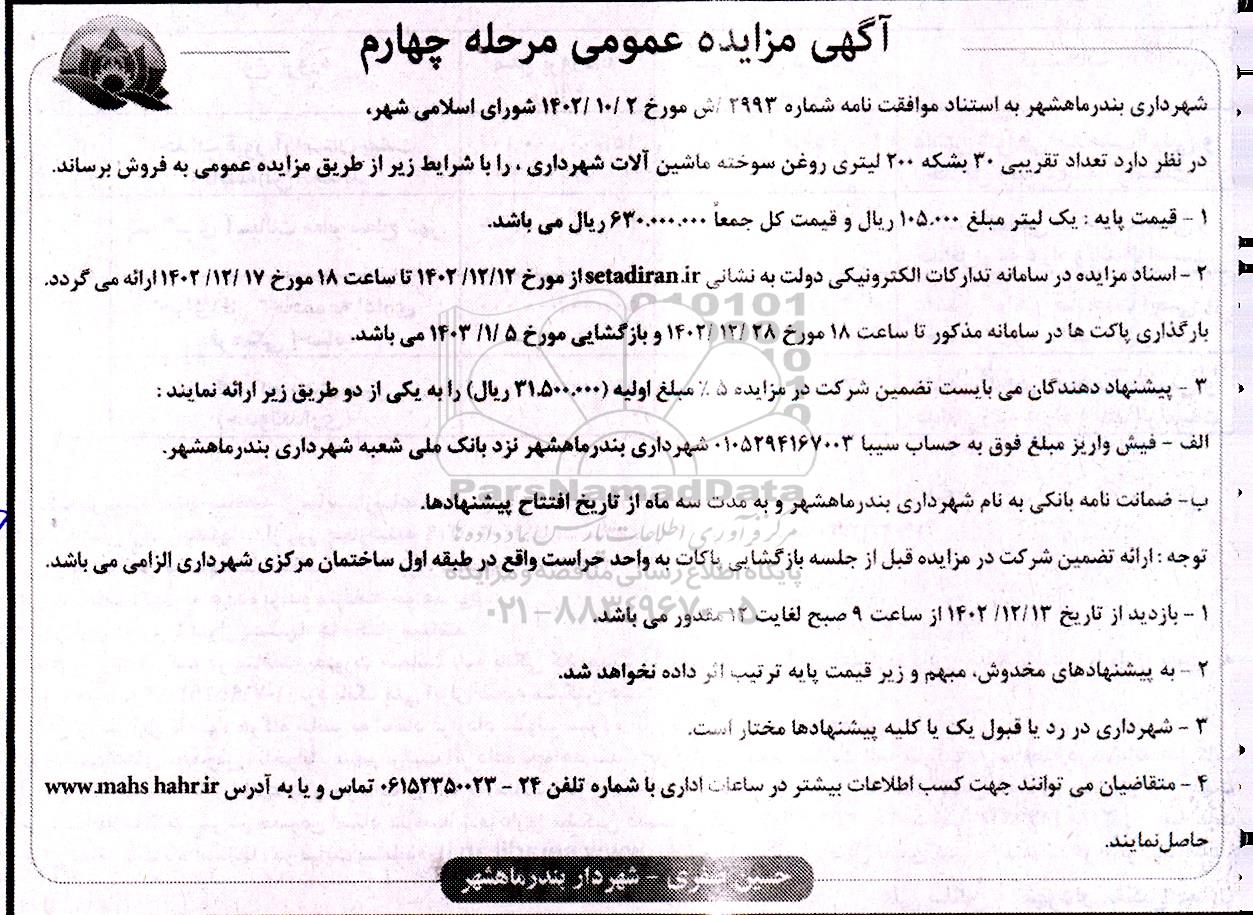 آگهی مزایده عمومی مرحله چهارم
شهرداری بندرماهشهر به استناد موافقت نامه شماره ۲۹۹۳ /ش مورخ ۲ /۱۰ /۱۴۰۲ شورای اسلامی شهر،
در نظر دارد تعداد تقریبی ۳۰ بشکه ۲۰۰ لیتری روغن سوخته ماشین آلات شهرداری ، را با شرایط زیر از طریق مزایده عمومی به فروش برساند.
۱ - قیمت پایه : یک لیتر مبلغ ۱۰۵.۰۰۰ ریال و قیمت کل جمعاً ۶۳۰.۰۰۰.۰۰۰ ریال می باشد.
۲ - اسناد مزایده در سامانه تدارکات الکترونیکی دولت به نشانی setadiran.ir از مورخ ۱۲/۱۲/ ۱۴۰۲ تا ساعت ۱۸ مورخ ۱۷ /۱۲/ ۱۴۰۲ ارائه می گردد.
بارگذاری پاکت ها در سامانه مذکور تا ساعت ۱۸ مورخ ۲۸ /۱۲/ ۱۴۰۲ و بازگشایی مورخ ۵ /۱/ ۱۴۰۳ می باشد.
۳ - پیشنهاد دهندگان می بایست تضمین شرکت در مزایده ۵ ٪ مبلغ اولیه (۳۱.۵۰۰.۰۰۰ ریال) را به یکی از دو طریق زیر ارائه نمایند :
الف - فیش واریز مبلغ فوق به حساب سیبا ۰۱۰۵۲۹۴۱۶۷۰۰۳ شهرداری بندرماهشهر نزد بانک ملی شعبه شهرداری بندرماهشهر.
ParsNamadData
ب- ضمانت نامه بانکی به نام شهرداری بندرماهشهر و به مدت سه ماه از تاریخ افتتاح پیشنهادها.
مرکز فرآوری اطلاعات پارس نماد داده ها
توجه : ارائه تضمین شرکت در مزایده قبل از جلسه بازگشایی پاکات به واحد حراست واقع در طبقه اول ساختمان مرکزی شهرداری الزامی می باشد.
پایگاه اطلاع رسانی مناقصه و مزایده
۱ - بازدید از تاریخ ۱۲/۱۳/ ۱۴۰۲ از ساعت ۹ صبح لغایت ۱۲ مقدور می باشد.
۰۲۱-۸۸۳۴۹۶۷۰-۵
۲ - به پیشنهادهای مخدوش، مبهم و زیر قیمت پایه ترتیب اثر داده نخواهد شد.
۳ - شهرداری در رد یا قبول یک یا کلیه پیشنهادها مختار است.
۴ - متقاضیان می توانند جهت کسب اطلاعات بیشتر در ساعات اداری با شماره تلفن ۲۴ - ۰۶۱۵۲۳۵۰۰۲۳ تماس و یا به آدرس www.mahs hahr.ir
حاصل‌نمایند.
حسین صفری - شهردار بندرماهشهر